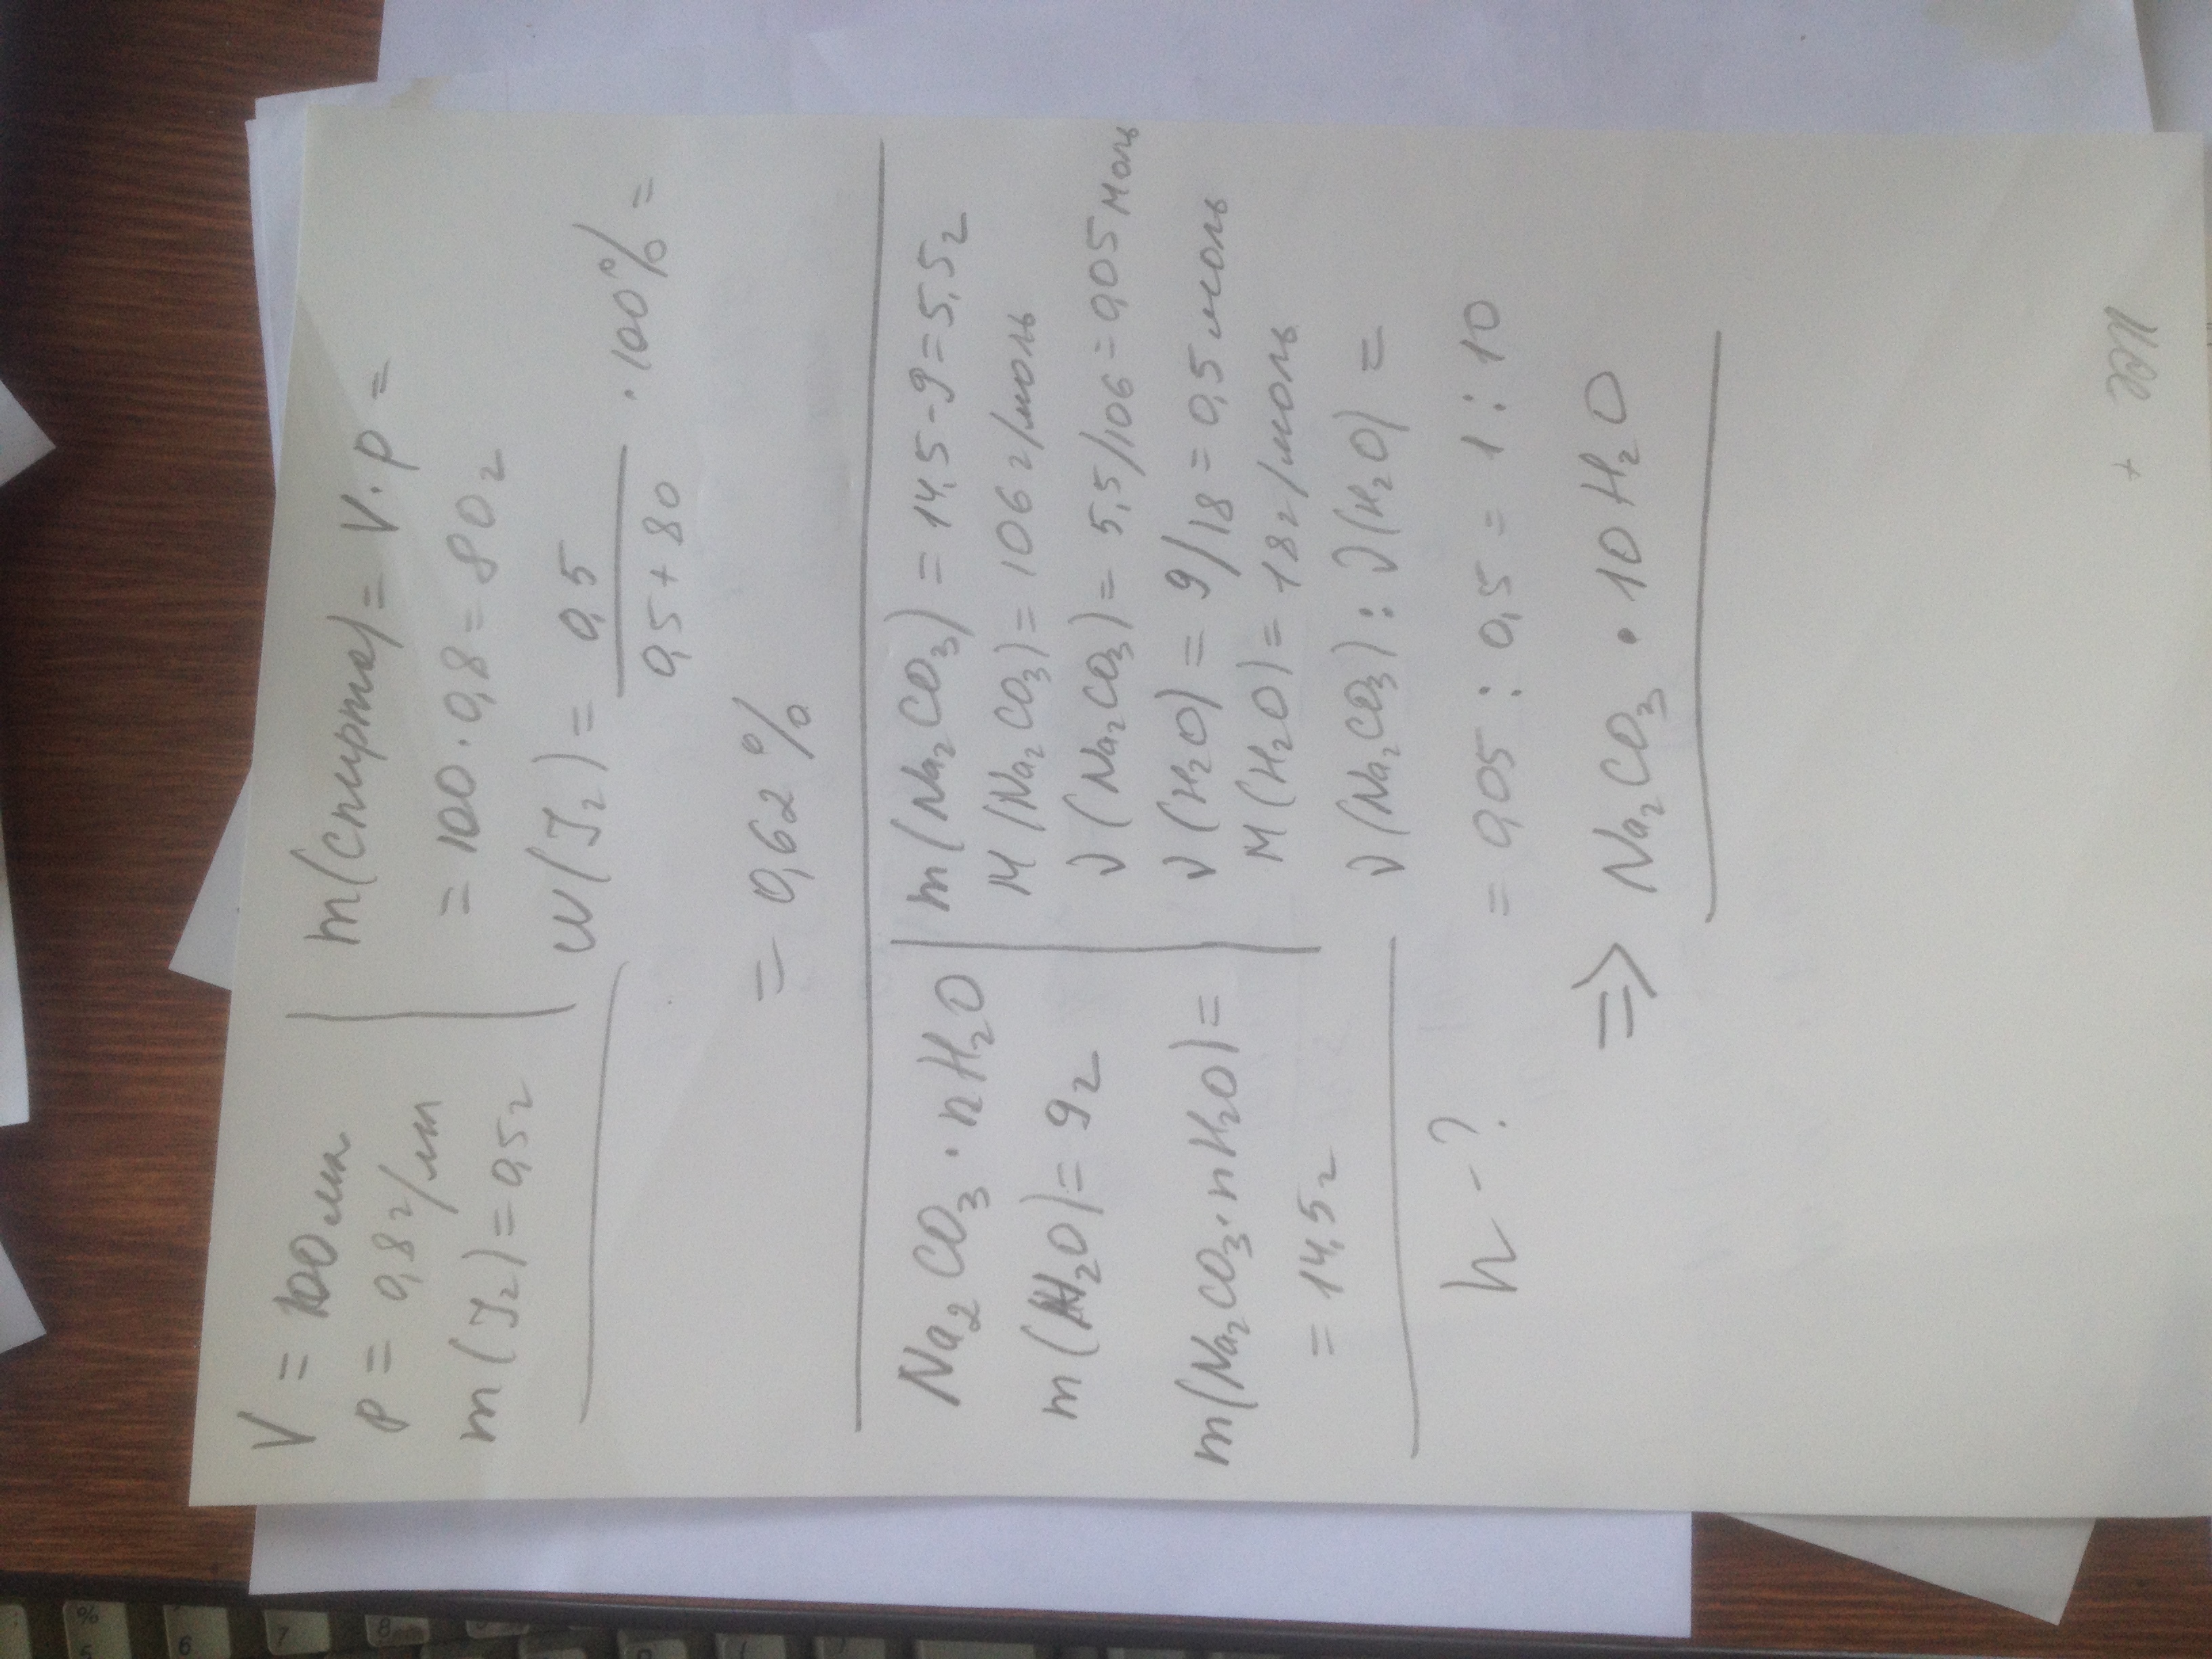 V = 100 мл
ρ = 0,8 г/мл
m(J₂) = 0,5 г
m(спирта) = V · ρ =
= 100 · 0,8 = 80 г
w(J₂) = 0,5 / 0,5 + 80 · 100% =
= 0,62 %
Na₂CO₃ · nH₂O
m(H₂O) = 9 г
m(Na₂CO₃ · nH₂O) =
= 14,5 г
n - ?
m(Na₂CO₃) = 14,5 - 9 = 5,5 г
M(Na₂CO₃) = 106 г/моль
ν(Na₂CO₃) = 5,5/106 = 0,05 моль
ν(H₂O) = 9/18 = 0,5 моль
M(H₂O) = 18 г/моль
ν(Na₂CO₃) : ν(H₂O) =
= 0,05 : 0,5 = 1 : 10
=> Na₂CO₃ · 10 H₂O
%
5
6
7
8